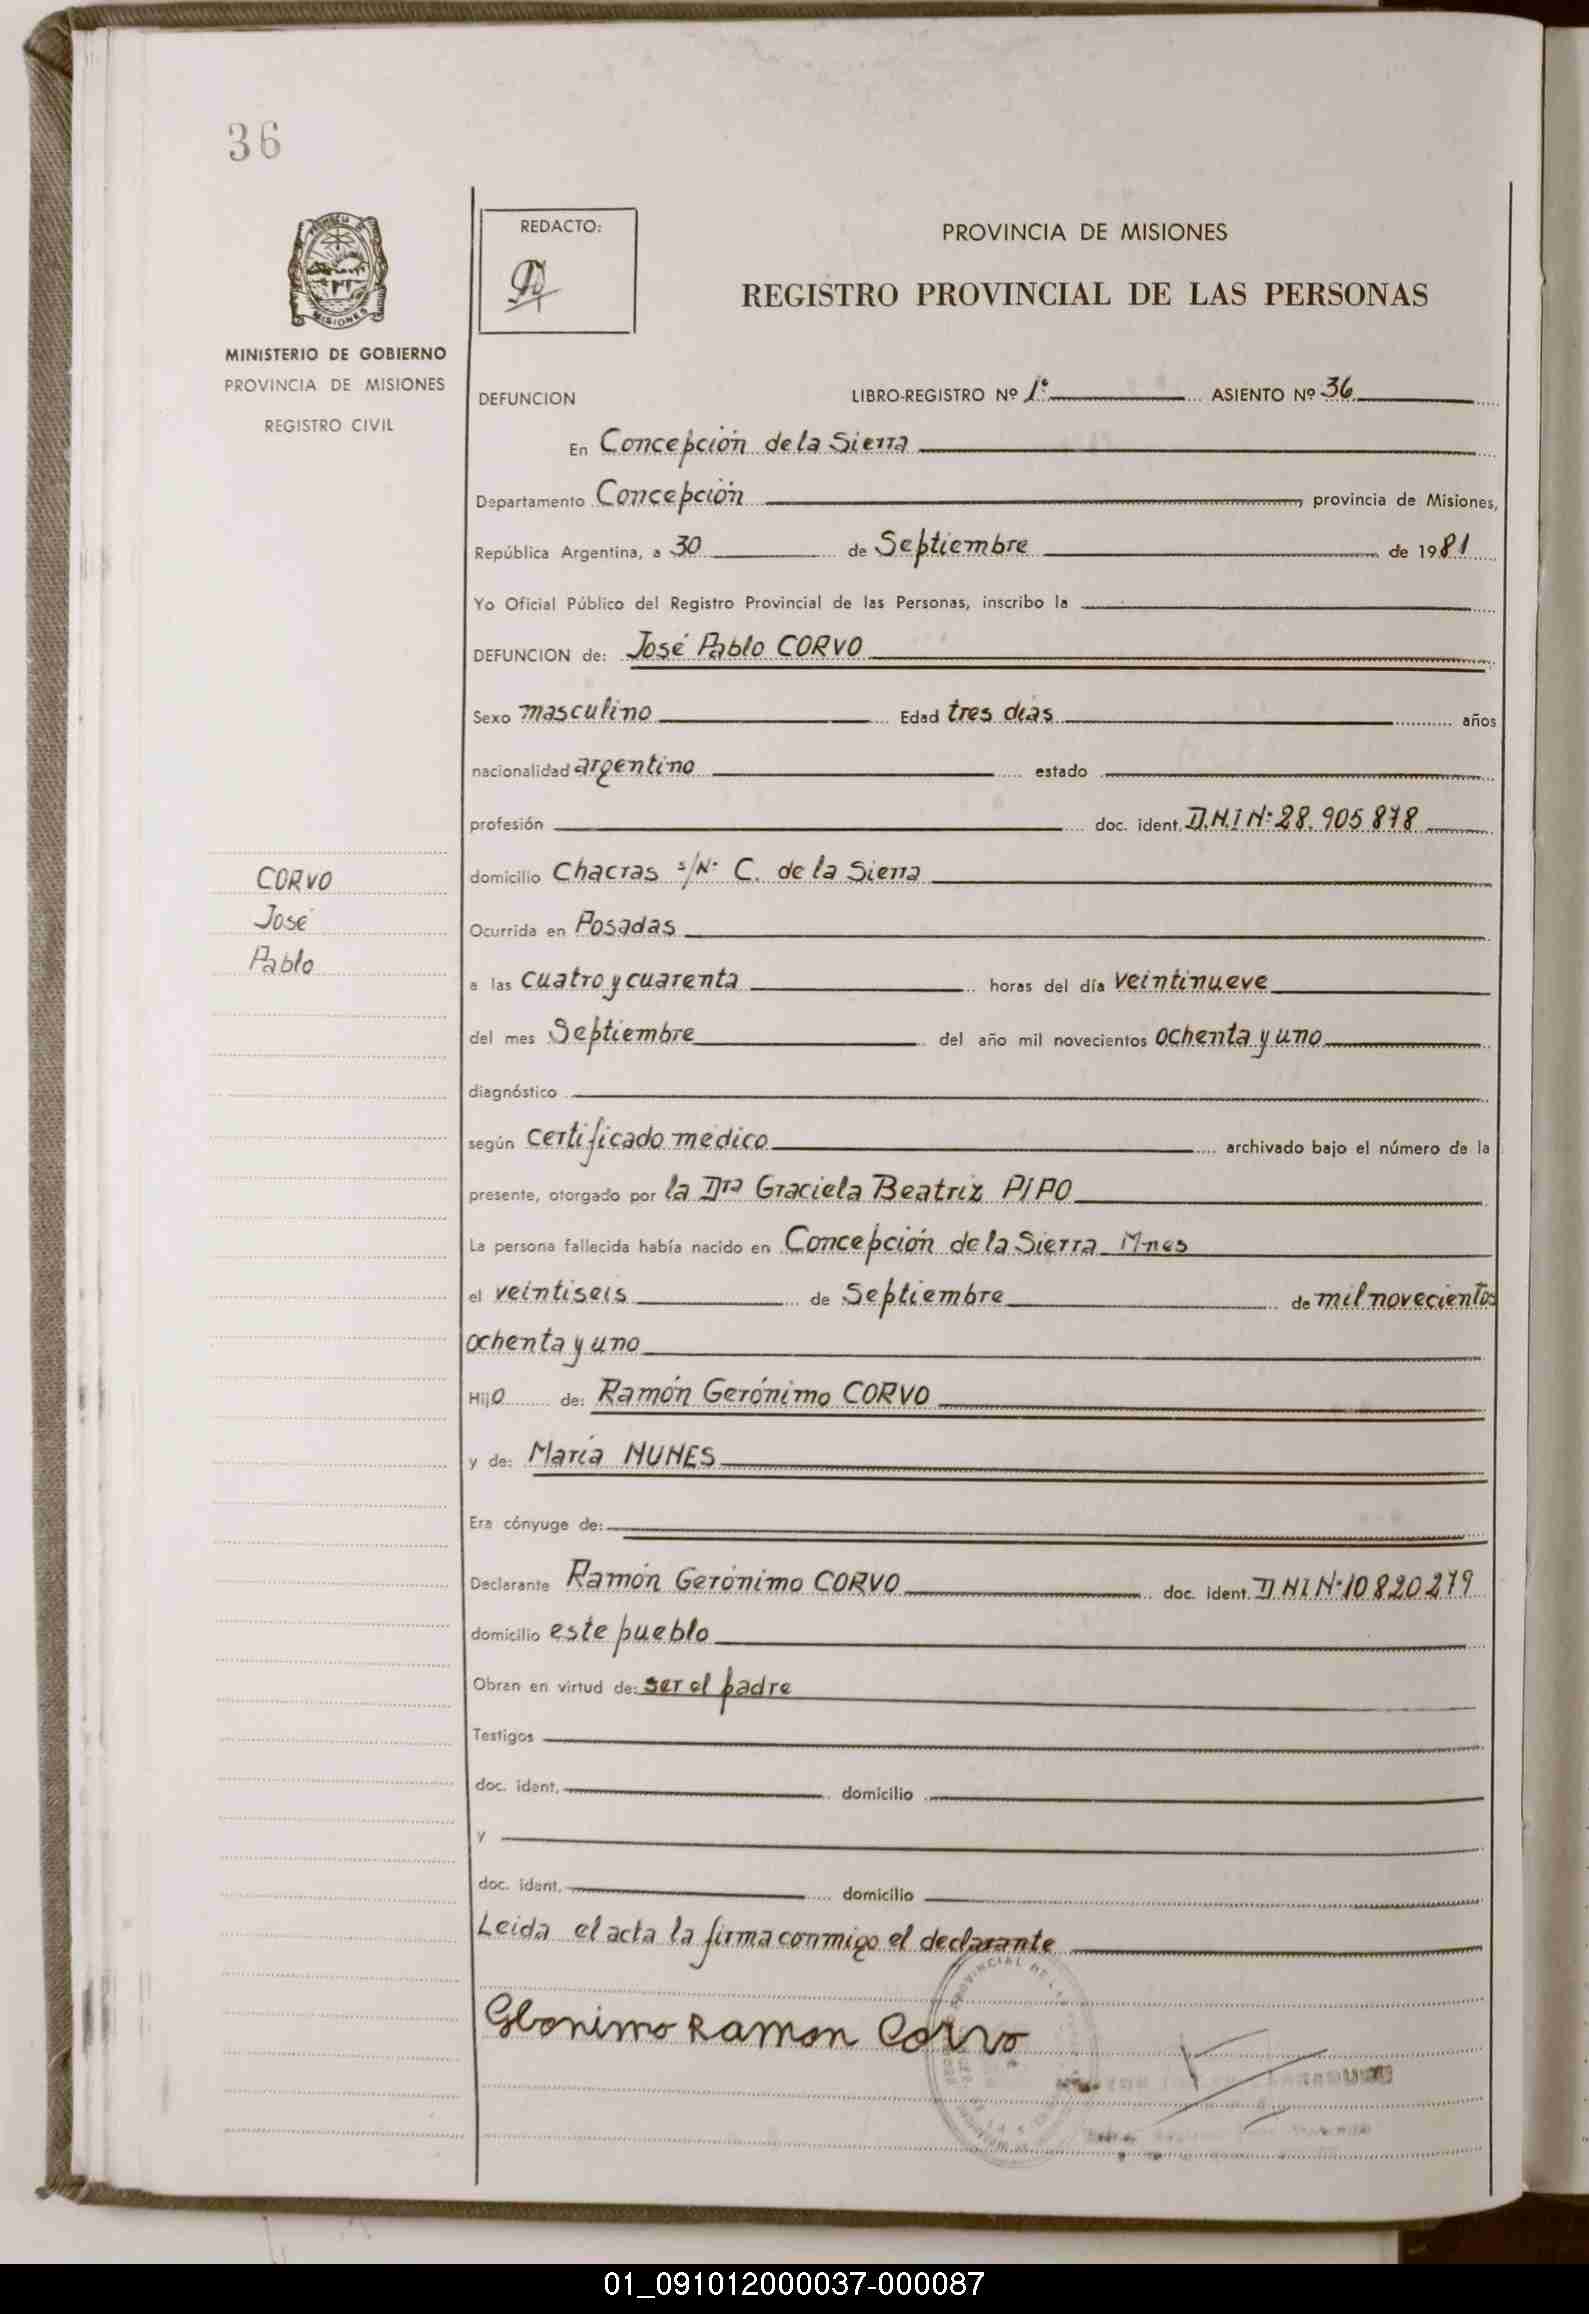 36
REDACTO:
PROVINCIA DE MISIONES
REGISTRO PROVINCIAL DE LAS PERSONAS
MISIONES
MINISTERIO DE GOBIERNO
PROVINCIA DE MISIONES
REGISTRO CIVIL
DEFUNCION LIBRO-REGISTRO Nº 1º ASIENTO Nº 36
En Concepción de la Sierra
Departamento Concepción, provincia de Misiones,
República Argentina, a 30 de Septiembre de 1981
Yo Oficial Público del Registro Provincial de las Personas, inscribo la
DEFUNCION de: José Pablo CORVO
Sexo masculino Edad tres dias años
nacionalidad argentino estado
profesión doc. ident. D.N.I Nº 28.905.878
domicilio Chacras s/Nº C. de la Sierra
CORVO
José
Pablo
Ocurrida en Posadas
a las cuatro y cuarenta horas del día veintinueve
del mes Septiembre del año mil novecientos ochenta y uno
diagnóstico
según certificado medico archivado bajo el número de la
presente, otorgado por la Dra Graciela Beatriz PIPO
La persona fallecida había nacido en Concepción de la Sierra Mnes
el veintiseis de Septiembre de mil novecientos
ochenta y uno
Hijo de: Ramón Gerónimo CORVO
y de: María NUNES
Era cónyuge de:
Declarante Ramón Gerónimo CORVO doc. ident. DNI Nº 10820279
domicilio este pueblo
Obran en virtud de: ser el padre
Testigos
doc. ident. domicilio
y
doc. ident. domicilio
Leida el acta la firma conmigo el declarante
Glonimo Ramon Corvo
01_091012000037-000087